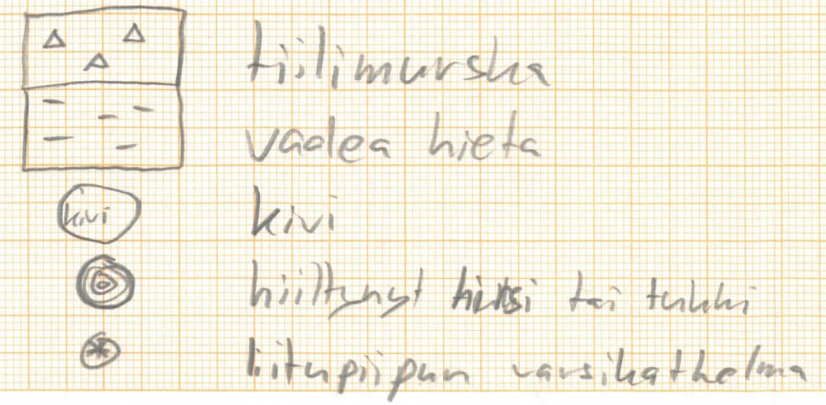 tiilimurska
vaalea hieta
kivi kivi
hiiltynyt hirsi tai tukki
liitupiipun varsikatkelma